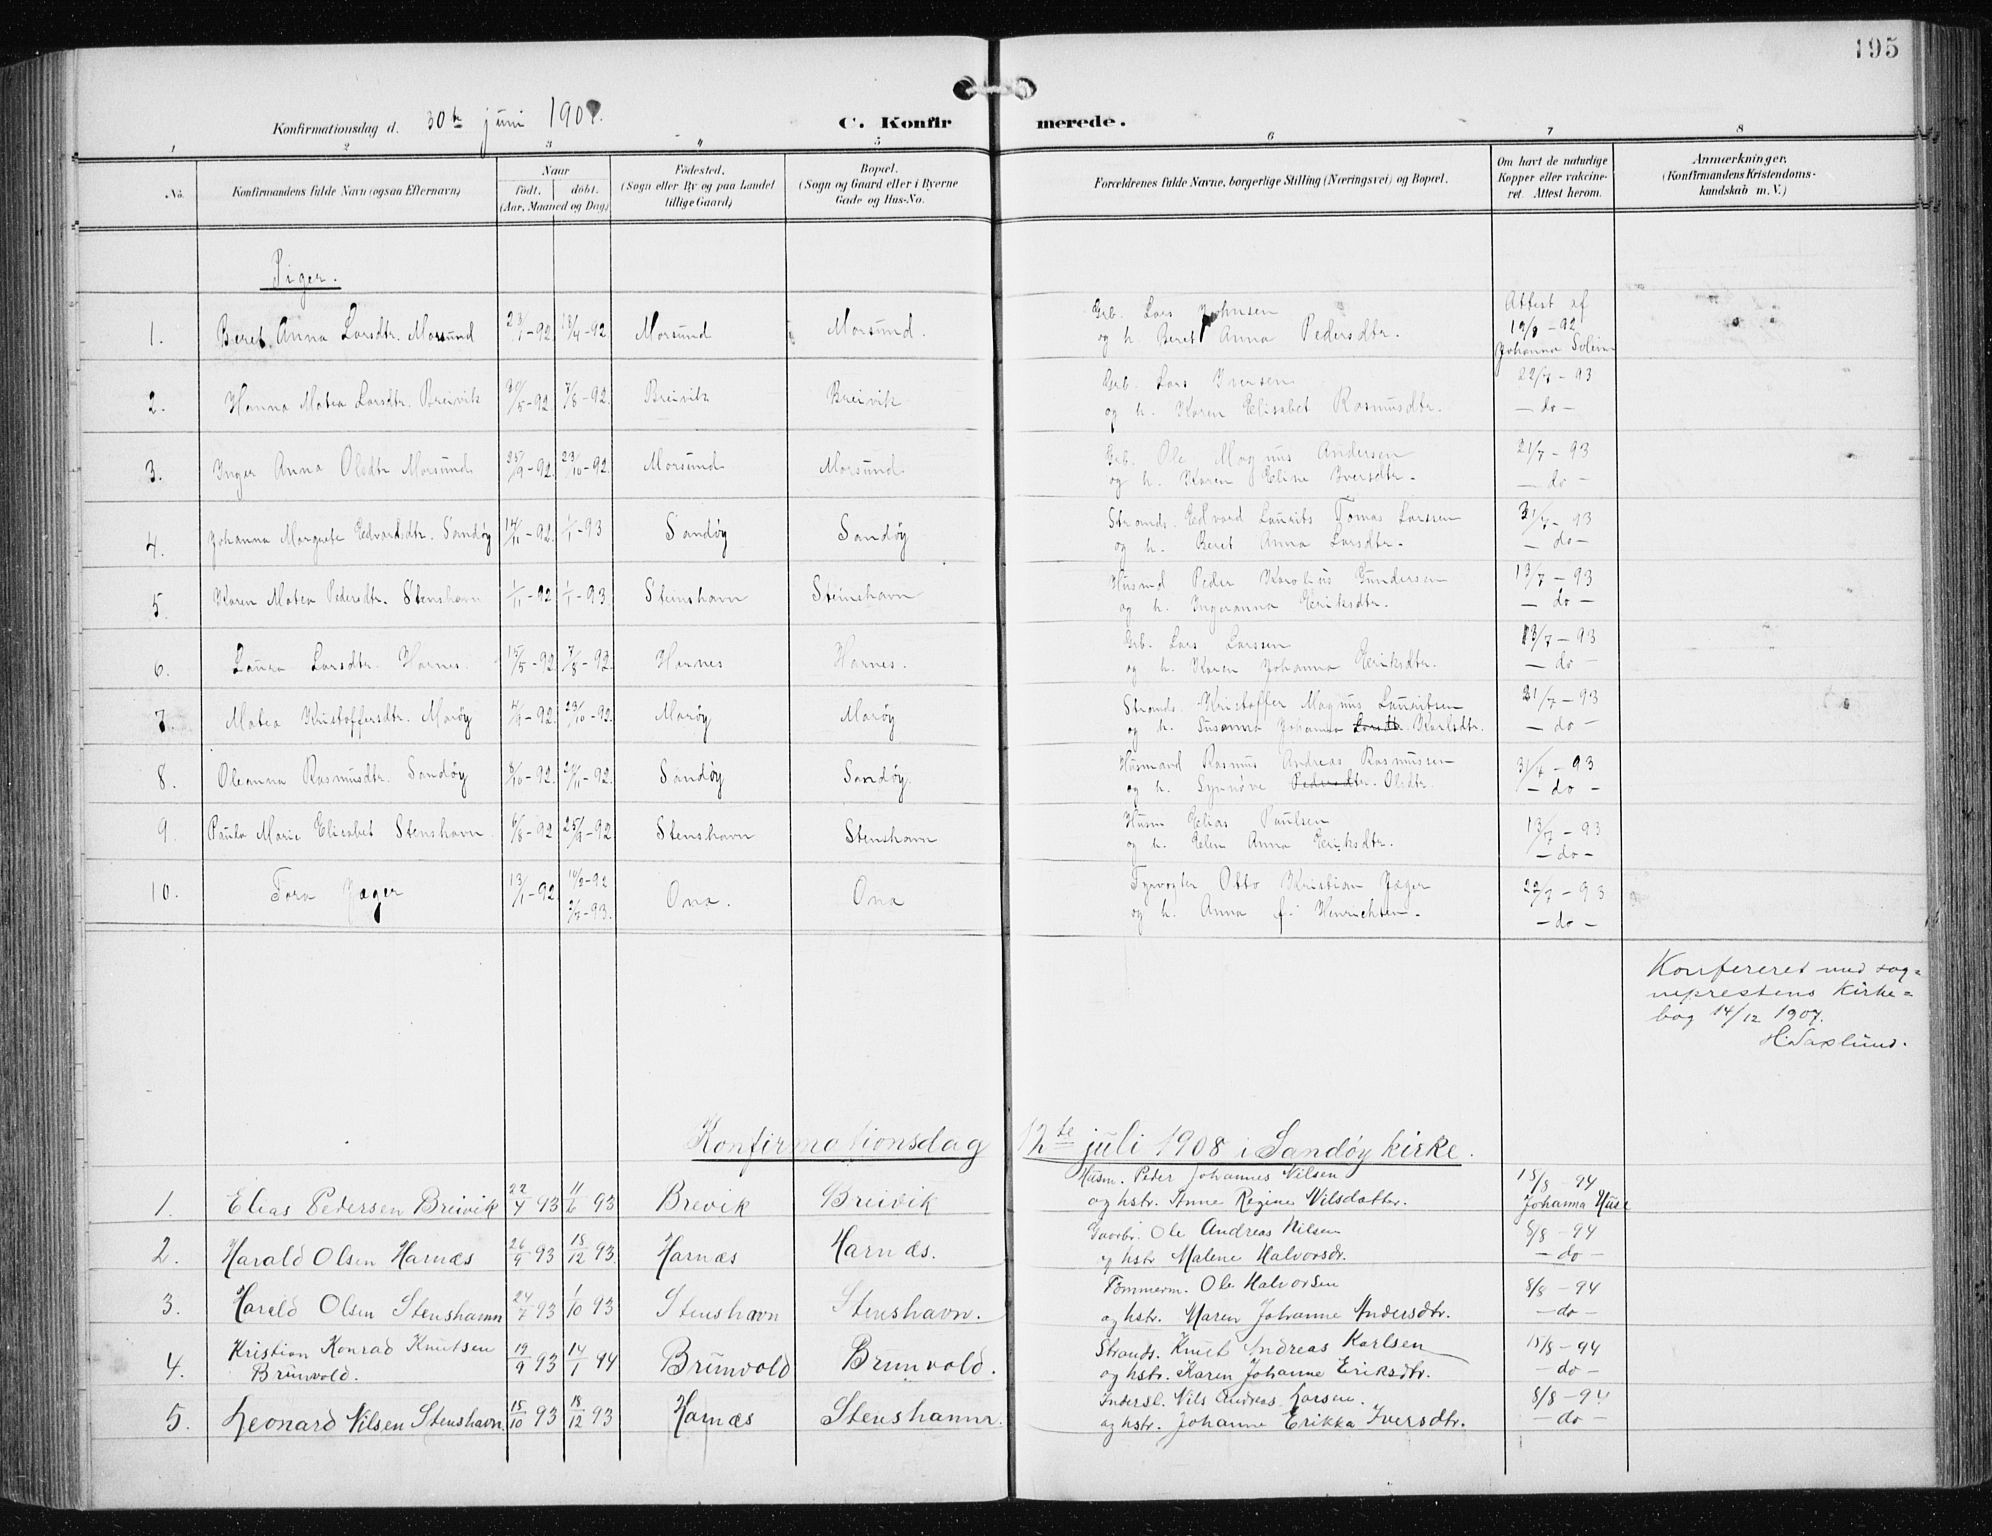 195
Konfirmationsdag d. 30te juni 1907.
C. Konfirmerede.
1 2 3 4 5 6 7 8
No.
Konfirmandens fulde Navn (ogsaa Efternavn)
Naar
født. døbt.
(Aar, Maaned og Dag)
Fødested.
(Sogn eller By og paa Landet
tillige Gaard)
Bopæl.
(Sogn og Gaard eller i Byerne
Gade og Hus-No.
Forældrenes fulde Navne, borgerlige Stilling (Næringsvei) og Bopæl.
Om havt de naturlige
Kopper eller vakcine-
ret. Attest herom.
Anmærkninger.
(Konfirmandens Kristendoms-
kundskab m. V.)
Piger.
1. Beret Anna Larsdtr. Morsund 23/1-92 18/4-92 Morsund Morsund.
Grb. Lars Johnsen
og h. Beret Anna Pedersdtr.
Attest af
19/8-92
Johanna Solem
2. Hanna Matea Larsdtr. Breivik 30/5-92 7/8-92 Breivik Breivik
Grb. Lars Iversen
og h. Karen Elisabet Rasmusdtr.
22/7-93
- do -
3. Inger Anna Olsdtr Morsund 25/9-92 23/10-92 Morsund Morsund
Grb. Ole Magnus Andersen
og h. Karen Eline Iversdtr.
21/7-93
- do -
4. Johanna Margrete Edvardsdtr. Sandøy 14/11-92 1/1-93 Sandøy Sandøy
Strands. Edvard Laurits Tomas Larssen
og h. Beret Anna Larsdtr.
31/7-93
- do -
5. Karen Matea Pedersdtr. Stenshavn 1/11-92 1/1-93 Steinshavn Steinshavn
Husmd Peder Karolius Gundersen
og h. Ingeranna Eriksdtr.
13/7-93
- do -
6. Laura Larsdtr. Harnes. 15/5-92 7/8-92 Harnes Harnes.
Grb. Lars Larssen
og h. Karen Johanna Eriksdtr.
13/7-93
- do -
7 Matea Kristoffersdtr. Marøy 4/9-92 23/10-92 Marøy Marøy
Strands. Kristoffer Magnus Lauritsen
og h. Susanna Johanna Larsdtr. Karlsdtr.
21/7-93
- do -
8. Oleanna Rasmusdtr. Sandøy 8/10-92 27/11-92 Sandøy Sandøy
Husmand Rasmus Andreas Rasmussen
og h. Synnøve Pedersdtr. Olsdtr.
31/7-93
- do -
9. Paula Marie Elisabet Stenshavn 6/8-92 25/9-92 Stenshavn Stenshavn
Husm Elias Paulsen
og h. Elen Anna Eriksdtr.
13/7-93
- do -
10. Tora Jæger 13/1-92 14/2-92 Ona. Ona
2/7-93.
Fyrvogter Otto Kristian Jæger
og h. Anna f. Henrichsen.
22/7-93
- do -
Konfereret med sog-
neprestens Kirke-
bog 14/12 1907.
H. Saxlund.
Konfirmationsdag 12te juli 1908 i Sandøy kirke.
1. Elias Pedersen Breivik 22/4 93 11/6 93 Brevik Breivik
Husm. Peter Johannes Nilsen
og hstr. Anne Regine Nilsdatter.
15/8-94
Johanna Huse
2. Harald Olsen Harnæs 26/9 93 18/12 93. Harnæs Harnæs.
Gaarbr. Ole Andreas Nilsen
og hstr Malene Halvorsdr.
8/8-94
- do -
3. Harald Olsen Stenshamn 24/7 93 1/10 93 Stenshavn Stenshavn.
Tømmerm. Ole Halvorsen
og hstr. Maren Johanne Andersdtr.
8/8-94
- do -
4. Kristian Konrad Knutsen
Brunvold. 19/9 93 14/1 94 Brunvold Brunvold.
Strands. Knut Andreas Karlsen
og hstr. Karen Johanne Eriksdtr.
15/8-94
- do -
5. Leonard Nilsen Stenshavn. 15/10 93 18/12 93 Harnæs Stenshamn.
Indersl. Nils Andreas Larsen.
og hstr. Johanne Erikka Iversdtr.
8/8-94
- do -